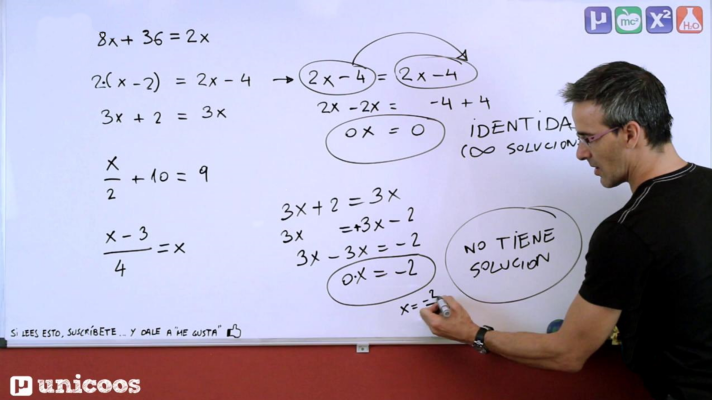 8x + 36 = 2x
2·(x - 2) = 2x - 4 → 2x - 4 = 2x - 4
2x - 2x = -4 + 4
0x = 0
IDENTIDA
(∞ SOLUCION
3x + 2 = 3x
x/2 + 10 = 9
x - 3/4 = x
3x + 2 = 3x
3x = +3x - 2
3x - 3x = -2
0·x = -2
NO TIENE
SOLUCION
x = -2
SI LEES ESTO, SUSCRÍBETE... Y DALE A "ME GUSTA"
µ mc² x² H₂O
µ unicoos